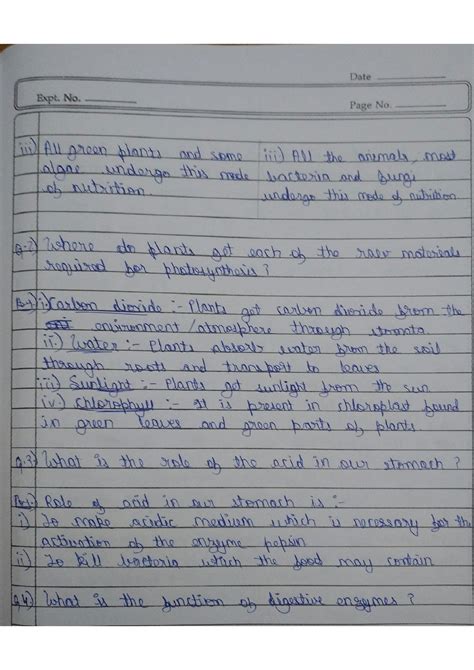 Date
Expt. No.
Page No.
iii) All green plants and some
algae undergo this mode
of nutrition.
iii) All the animals, most
bacteria and fungi
undergo this mode of nutrition
Q.2) Where do plants get each of the raw materials
required for photosynthesis?
i) Carbon dioxide :- Plants get carbon dioxide from the
environment/atmosphere through stomata
ii) Water :- Plants absorb water from the soil
through roots and transport to leaves
iii) Sunlight :- Plants get sunlight from the sun
iv) Chlorophyll :- It is present in chloroplast found
in green leaves and green parts of plants
Q.3) What is the role of the acid in our stomach?
Role of acid in our stomach is :-
i) To make acidic medium which is necessary for the
activation of the enzyme pepsin
ii) To kill bacteria which the food may contain
Q.4) What is the function of digestive enzymes?